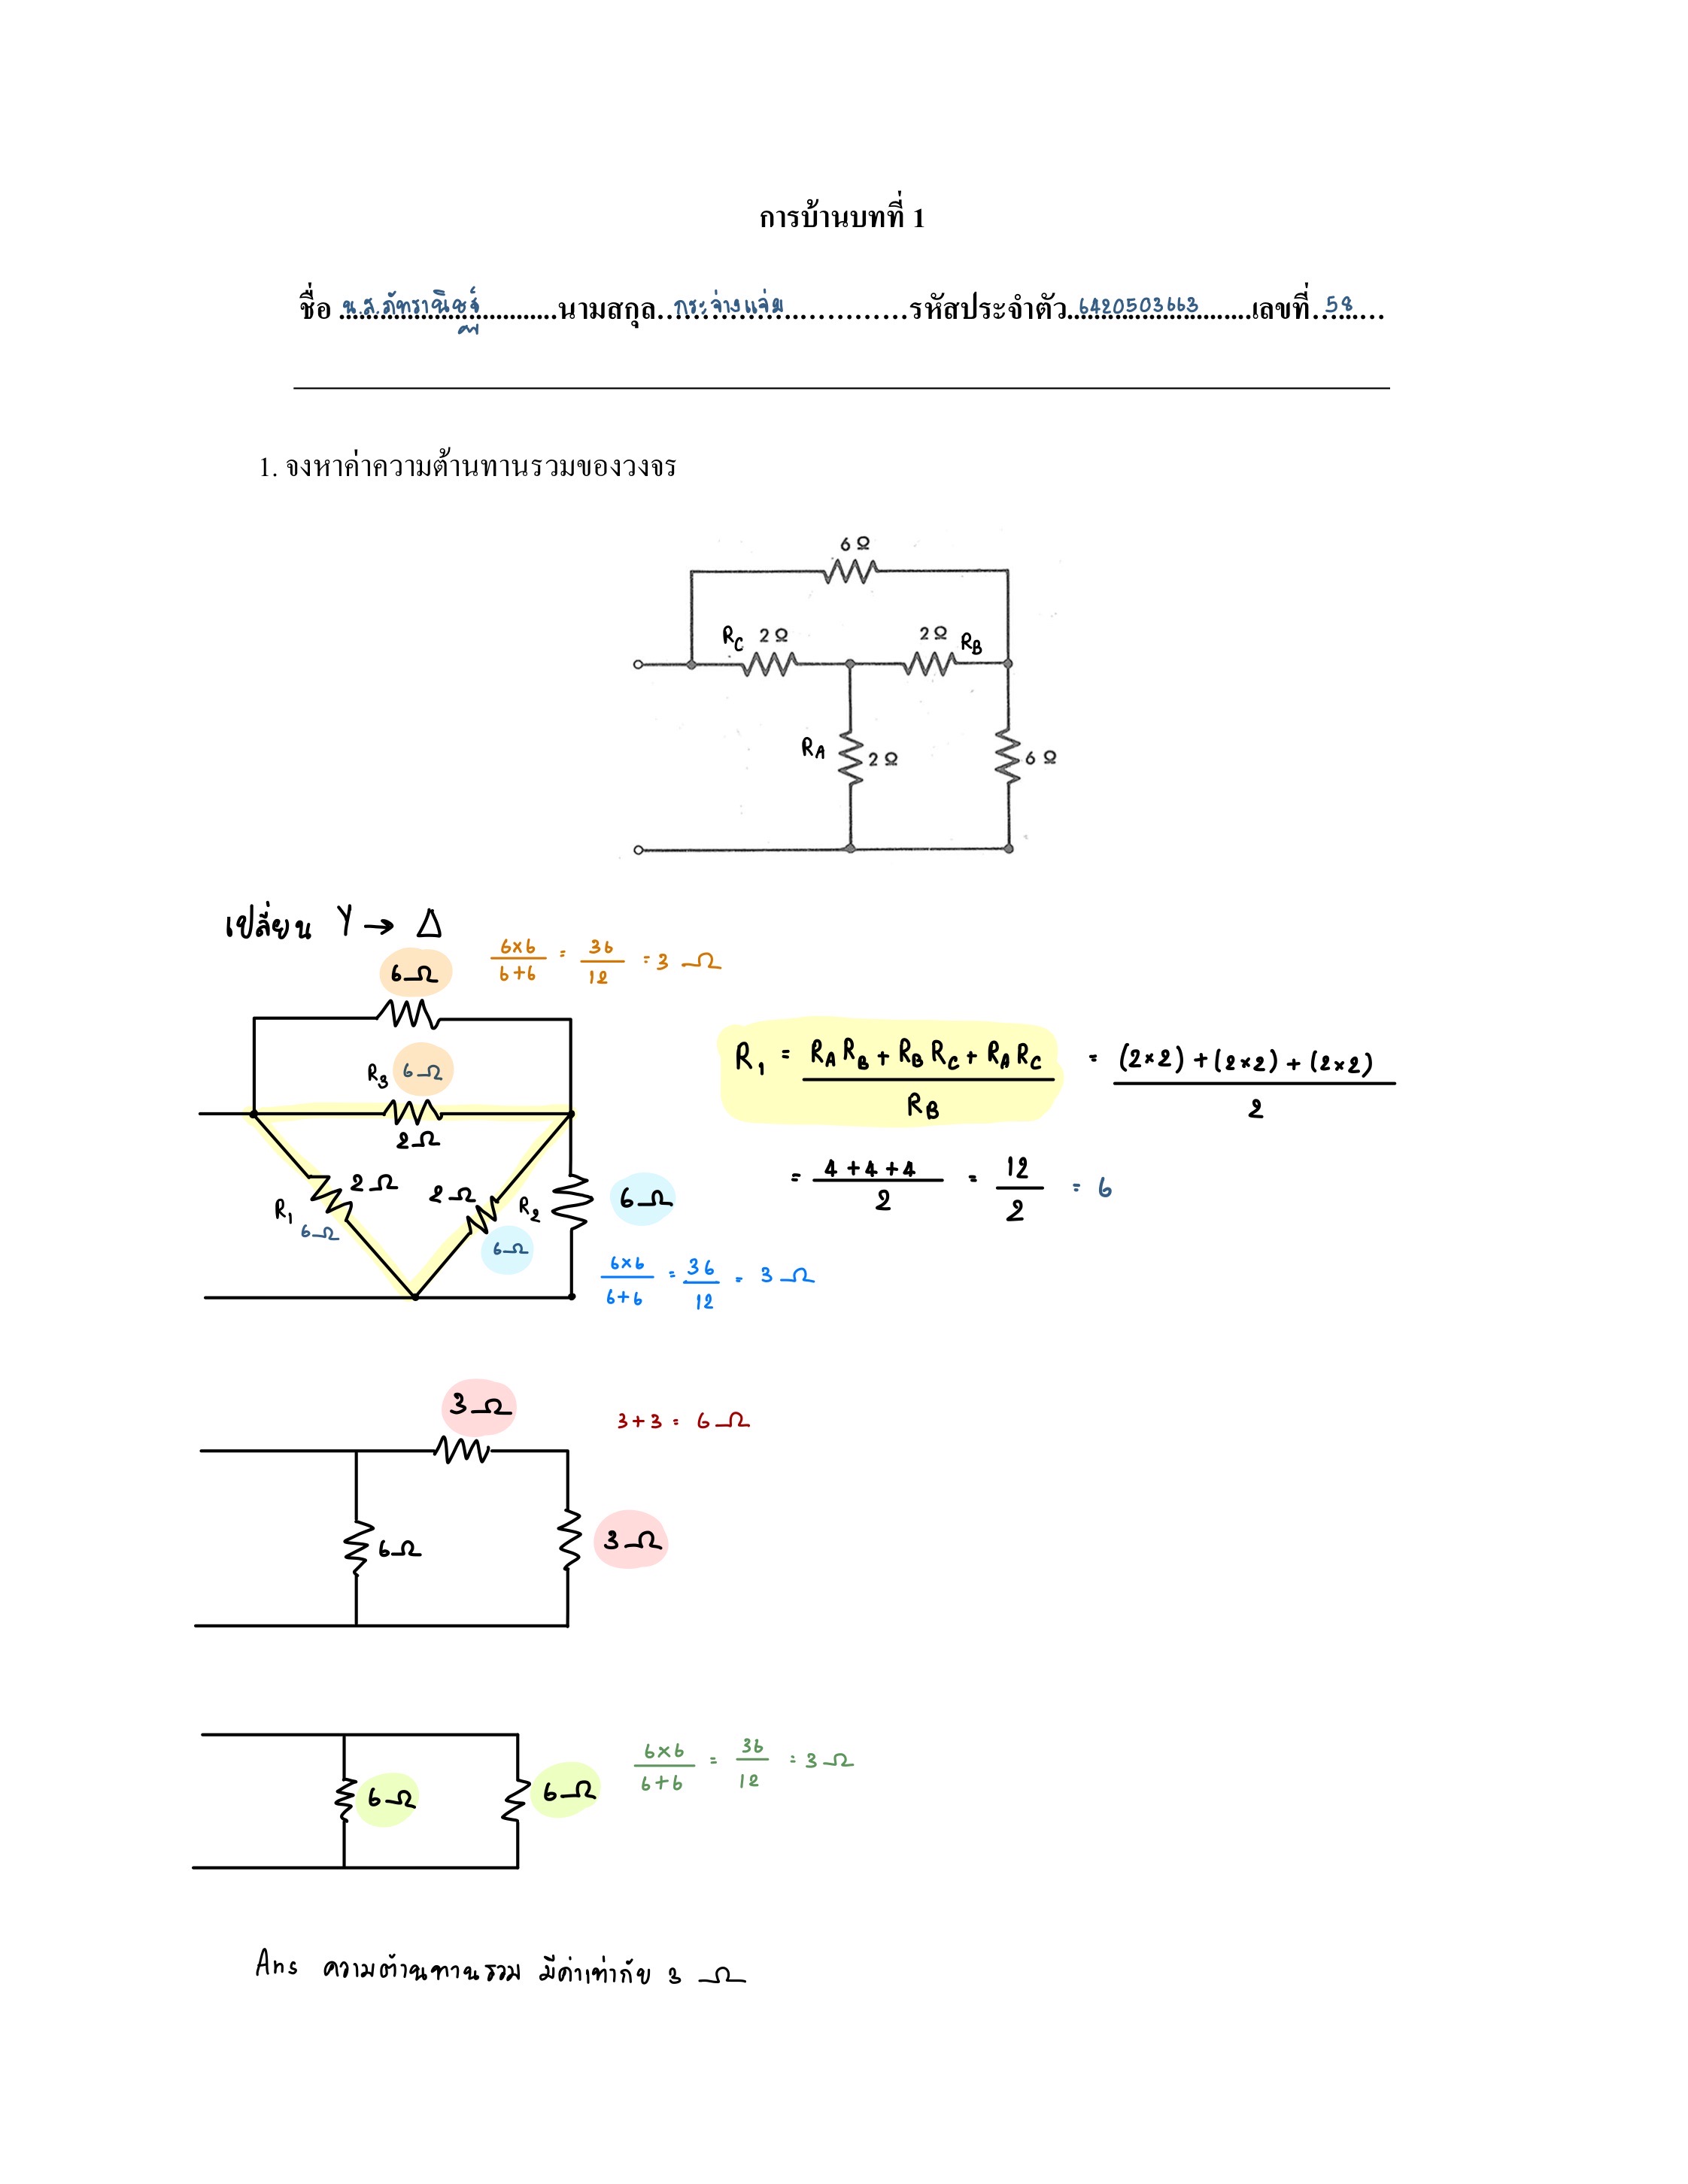 การบ้านบทที่ 1
ชื่อ น.ส.ภัทราณิษฐ์ นามสกุล กระจ่างแจ่ม รหัสประจำตัว 6420503663 เลขที่ 58
1. จงหาค่าความต้านทานรวมของวงจร
6 Ω
R_C 2 Ω 2 Ω R_B
R_A 2 Ω 6 Ω
เปลี่ยน Y → Δ
6Ω (6×6)/(6+6) = 36/12 = 3 Ω
R_3 6Ω
2Ω
R_1 = (R_A R_B + R_B R_C + R_A R_C)/R_B = ((2×2) + (2×2) + (2×2))/2
= (4+4+4)/2 = 12/2 = 6
2Ω 2Ω R_2 6Ω
R_1 6Ω 6Ω
(6×6)/(6+6) = 36/12 = 3 Ω
3Ω 3+3 = 6Ω
6Ω 3Ω
6Ω 6Ω (6×6)/(6+6) = 36/12 = 3Ω
Ans ความต้านทานรวม มีค่าเท่ากับ 3 Ω